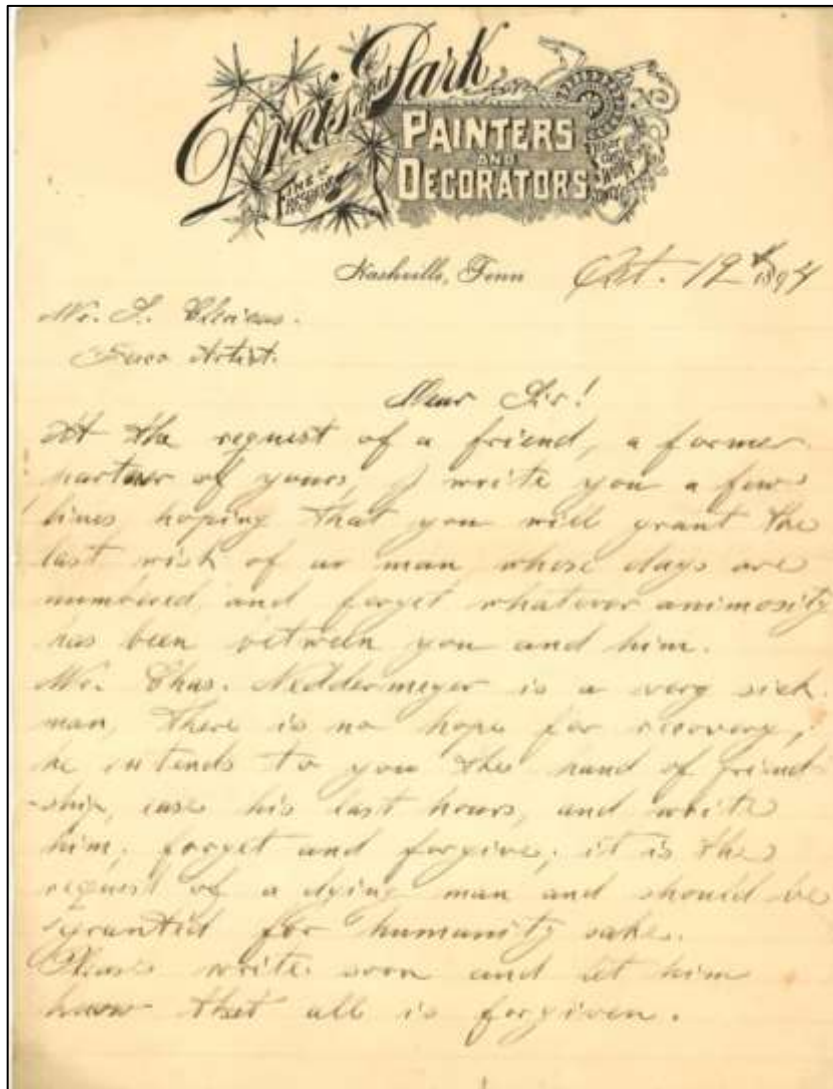 Dreis and Park
PAINTERS
AND
DECORATORS
FINE
FRESCOING
Nashville, Tenn Oct. 12th 1894
Mr. T.
Artist.
Dear Sir!
At the request of a friend, a former
partner of yours, I write you a few
lines hoping that you will grant the
last wish of a man whose days are
numbered, and forget whatever animosity
has been between you and him.
Mr. Chas. Neddermeyer is a very sick
man, there is no hope for recovery,
he extends to you the hand of friend
-ship, ease his last hours, and write
him; forget and forgive; it is the
request of a dying man and should be
granted for humanity sake.
Please write soon and let him
know that all is forgiven.